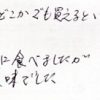 どこかでも買えるとい
に食べましたが
味でした